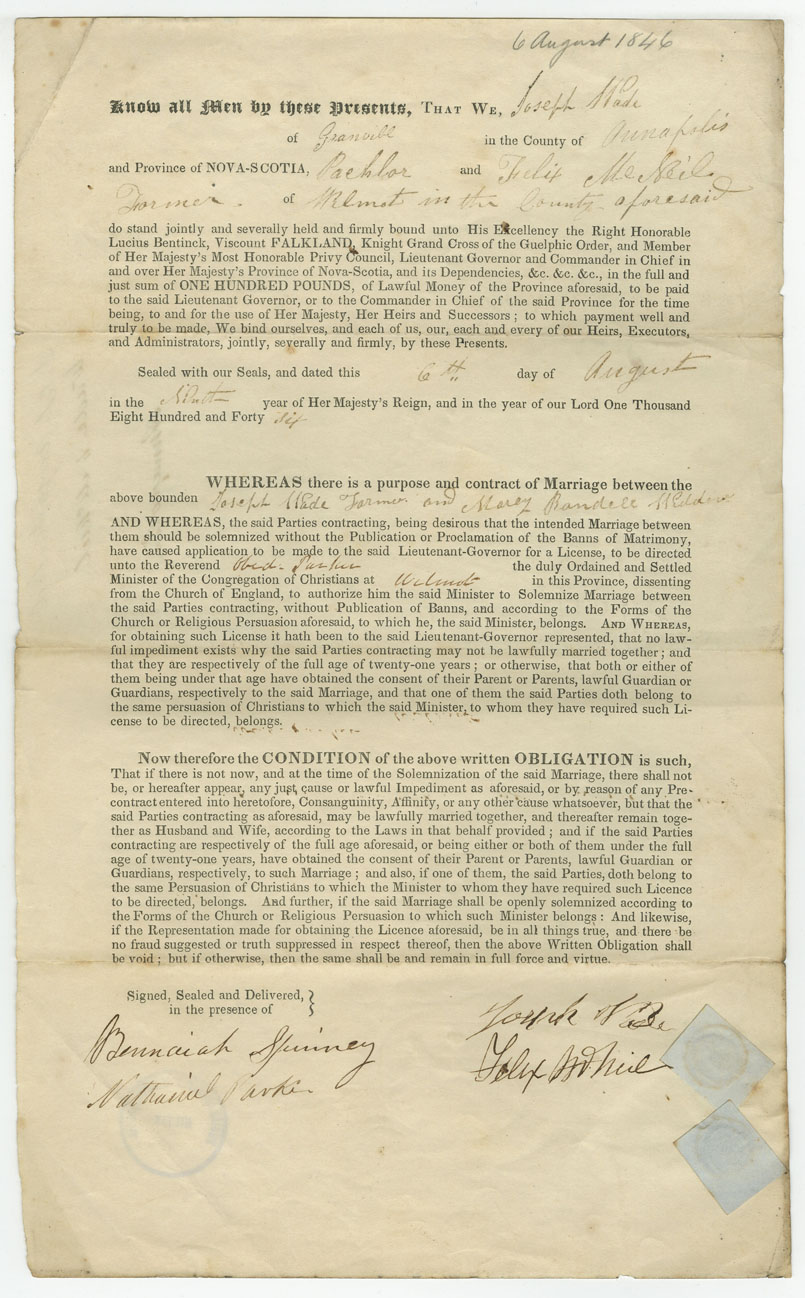 6 August 1846
Know all Men by these Presents, THAT WE, Joseph Wade
of Granvill in the County of Annapolis
and Province of NOVA-SCOTIA, Bachlor and Felix McNeil
Farmer. of Wilmot in the County aforesaid
do stand jointly and severally held and firmly bound unto His Excellency the Right Honorable
Lucius Bentinck, Viscount FALKLAND, Knight Grand Cross of the Guelphic Order, and Member
of Her Majesty's Most Honorable Privy Council, Lieutenant Governor and Commander in Chief in
and over Her Majesty's Province of Nova-Scotia, and its Dependencies, &c. &c. &c., in the full and
just sum of ONE HUNDRED POUNDS, of Lawful Money of the Province aforesaid, to be paid
to the said Lieutenant Governor, or to the Commander in Chief of the said Province for the time
being, to and for the use of Her Majesty, Her Heirs and Successors ; to which payment well and
truly to be made, We bind ourselves, and each of us, our, each and every of our Heirs, Executors,
and Administrators, jointly, severally and firmly, by these Presents.
Sealed with our Seals, and dated this 6th day of August
in the Ninth year of Her Majesty's Reign, and in the year of our Lord One Thousand
Eight Hundred and Forty six
WHEREAS there is a purpose and contract of Marriage between the
above bounden Joseph Wade Farmer and Marey Randell Widdow
AND WHEREAS, the said Parties contracting, being desirous that the intended Marriage between
them should be solemnized without the Publication or Proclamation of the Banns of Matrimony,
have caused application to be made to the said Lieutenant-Governor for a License, to be directed
unto the Reverend Obed. Parker the duly Ordained and Settled
Minister of the Congregation of Christians at Wilmot in this Province, dissenting
from the Church of England, to authorize him the said Minister to Solemnize Marriage between
the said Parties contracting, without Publication of Banns, and according to the Forms of the
Church or Religious Persuasion aforesaid, to which he, the said Minister, belongs. AND WHEREAS,
for obtaining such License it hath been to the said Lieutenant-Governor represented, that no law-
ful impediment exists why the said Parties contracting may not be lawfully married together ; and
that they are respectively of the full age of twenty-one years ; or otherwise, that both or either of
them being under that age have obtained the consent of their Parent or Parents, lawful Guardian or
Guardians, respectively to the said Marriage, and that one of them the said Parties doth belong to
the same persuasion of Christians to which the said Minister, to whom they have required such Li-
cense to be directed, belongs.
Now therefore the CONDITION of the above written OBLIGATION is such,
That if there is not now, and at the time of the Solemnization of the said Marriage, there shall not
be, or hereafter appear, any just cause or lawful Impediment as aforesaid, or by reason of any Pre-
contract entered into heretofore, Consanguinity, Affinity, or any other cause whatsoever, but that the
said Parties contracting as aforesaid, may be lawfully married together, and thereafter remain toge-
ther as Husband and Wife, according to the Laws in that behalf provided ; and if the said Parties
contracting are respectively of the full age aforesaid, or being either or both of them under the full
age of twenty-one years, have obtained the consent of their Parent or Parents, lawful Guardian or
Guardians, respectively, to such Marriage ; and also, if one of them, the said Parties, doth belong to
the same Persuasion of Christians to which the Minister to whom they have required such Licence
to be directed, belongs. And further, if the said Marriage shall be openly solemnized according to
the Forms of the Church or Religious Persuasion to which such Minister belongs : And likewise,
if the Representation made for obtaining the Licence aforesaid, be in all things true, and there be
no fraud suggested or truth suppressed in respect thereof, then the above Written Obligation shall
be void ; but if otherwise, then the same shall be and remain in full force and virtue.
Signed, Sealed and Delivered,
in the presence of
Joseph Wade
Bennaiah Spinney
Felix McNeil
Nathaniel Parker